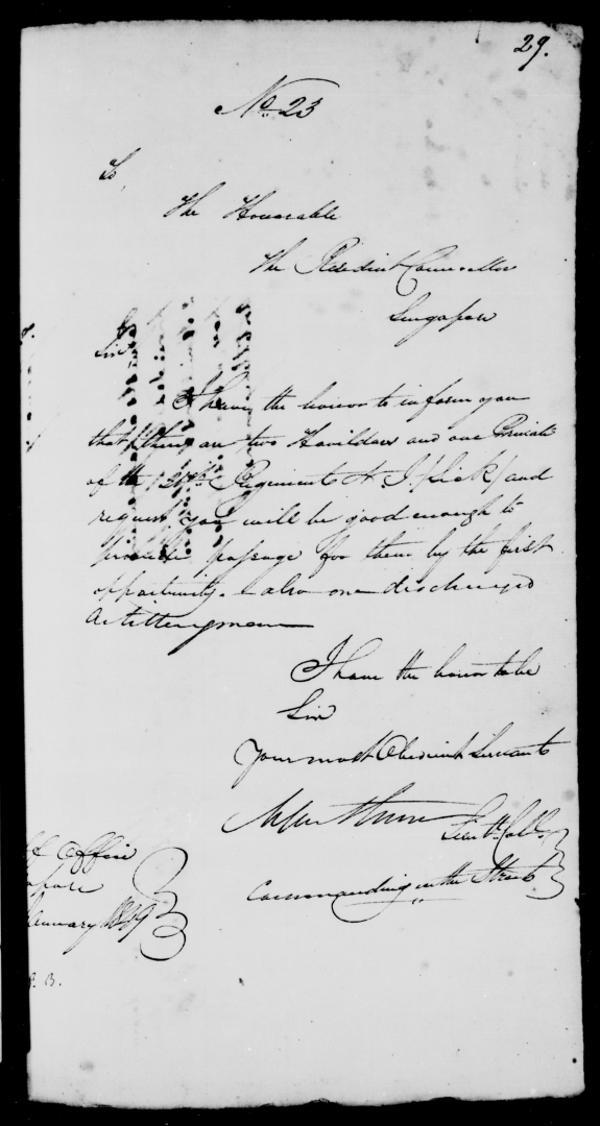 29.
No. 23
To
The Honorable
The Resident Councillor
Singapore
Sir
I have the honor to inform you
that there are two Havildars and one Private
of the Regiment N. I. /sick/ and
request you will be good enough to
provide passage for them by the first
opportunity. also one discharged
Artilleryman
I have the honor to be
Sir
Your most Obedient Servant
Lieut. Coll.
Commanding in the Straits
Office
apore
January 1849
P. B.